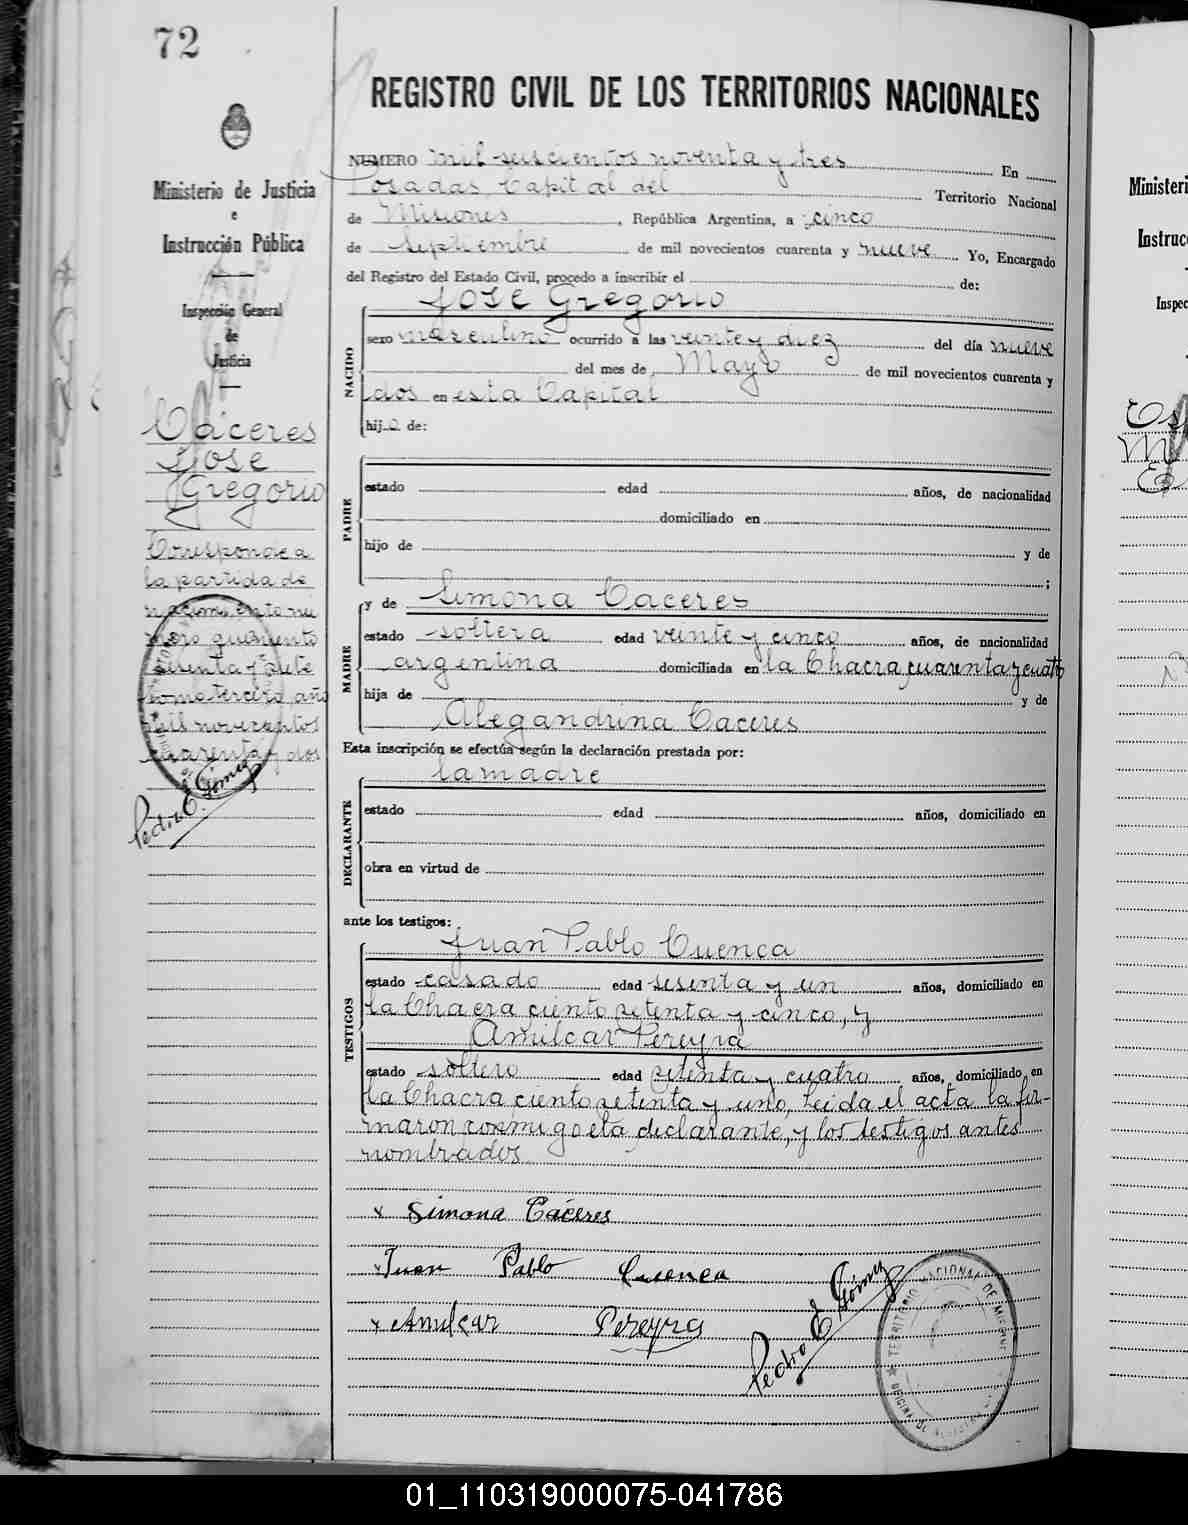 72
Ministerio de Justicia
e
Instrucción Pública
Inspección General
de
Justicia
Cáceres
Jose
Gregorio
Corresponde a
la partida de
nacimiento nu
mero
sesenta y siete
tomo tercero, año
mil novecientos
cuarenta y dos
Pedro E. Gómez
REGISTRO CIVIL DE LOS TERRITORIOS NACIONALES
NUMERO mil seiscientos noventa y tres En
Posadas Capital del Territorio Nacional
de Misiones, República Argentina, a cinco
de Septiembre de mil novecientos cuarenta y nueve Yo, Encargado
del Registro del Estado Civil, procedo a inscribir el de:
Jose Gregorio
NACIDO
sexo masculino ocurrido a las veinte y diez del día nueve
del mes de Mayo de mil novecientos cuarenta y
dos en esta Capital
hijo de:
PADRE
estado edad años, de nacionalidad
domiciliado en
hijo de y de
;
MADRE
y de Simona Caceres
estado soltera edad veinte y cinco años, de nacionalidad
argentina domiciliada en la Chacra cuarenta y cuatro
hija de y de
Alegandrina Caceres
Esta inscripción se efectúa según la declaración prestada por:
la madre
DECLARANTE
estado edad años, domiciliado en
obra en virtud de
ante los testigos:
Juan Pablo Cuenca
TESTIGOS
estado casado edad sesenta y un años, domiciliado en
la Chacra ciento setenta y cinco, y
Amilcar Pereyra
estado soltero edad setenta y cuatro años, domiciliado en
la Chacra ciento setenta y uno, leida el acta la fir-
maron conmigo la declarante, y los testigos antes
nombrados
x Simona Cáceres
x Juan Pablo Cuenca
x Amilcar Pereyra
Pedro E. Gómez
TERRITORIO NACIONAL DE MISIONES
Ministeri
Instruc
Inspec
01_110319000075-041786